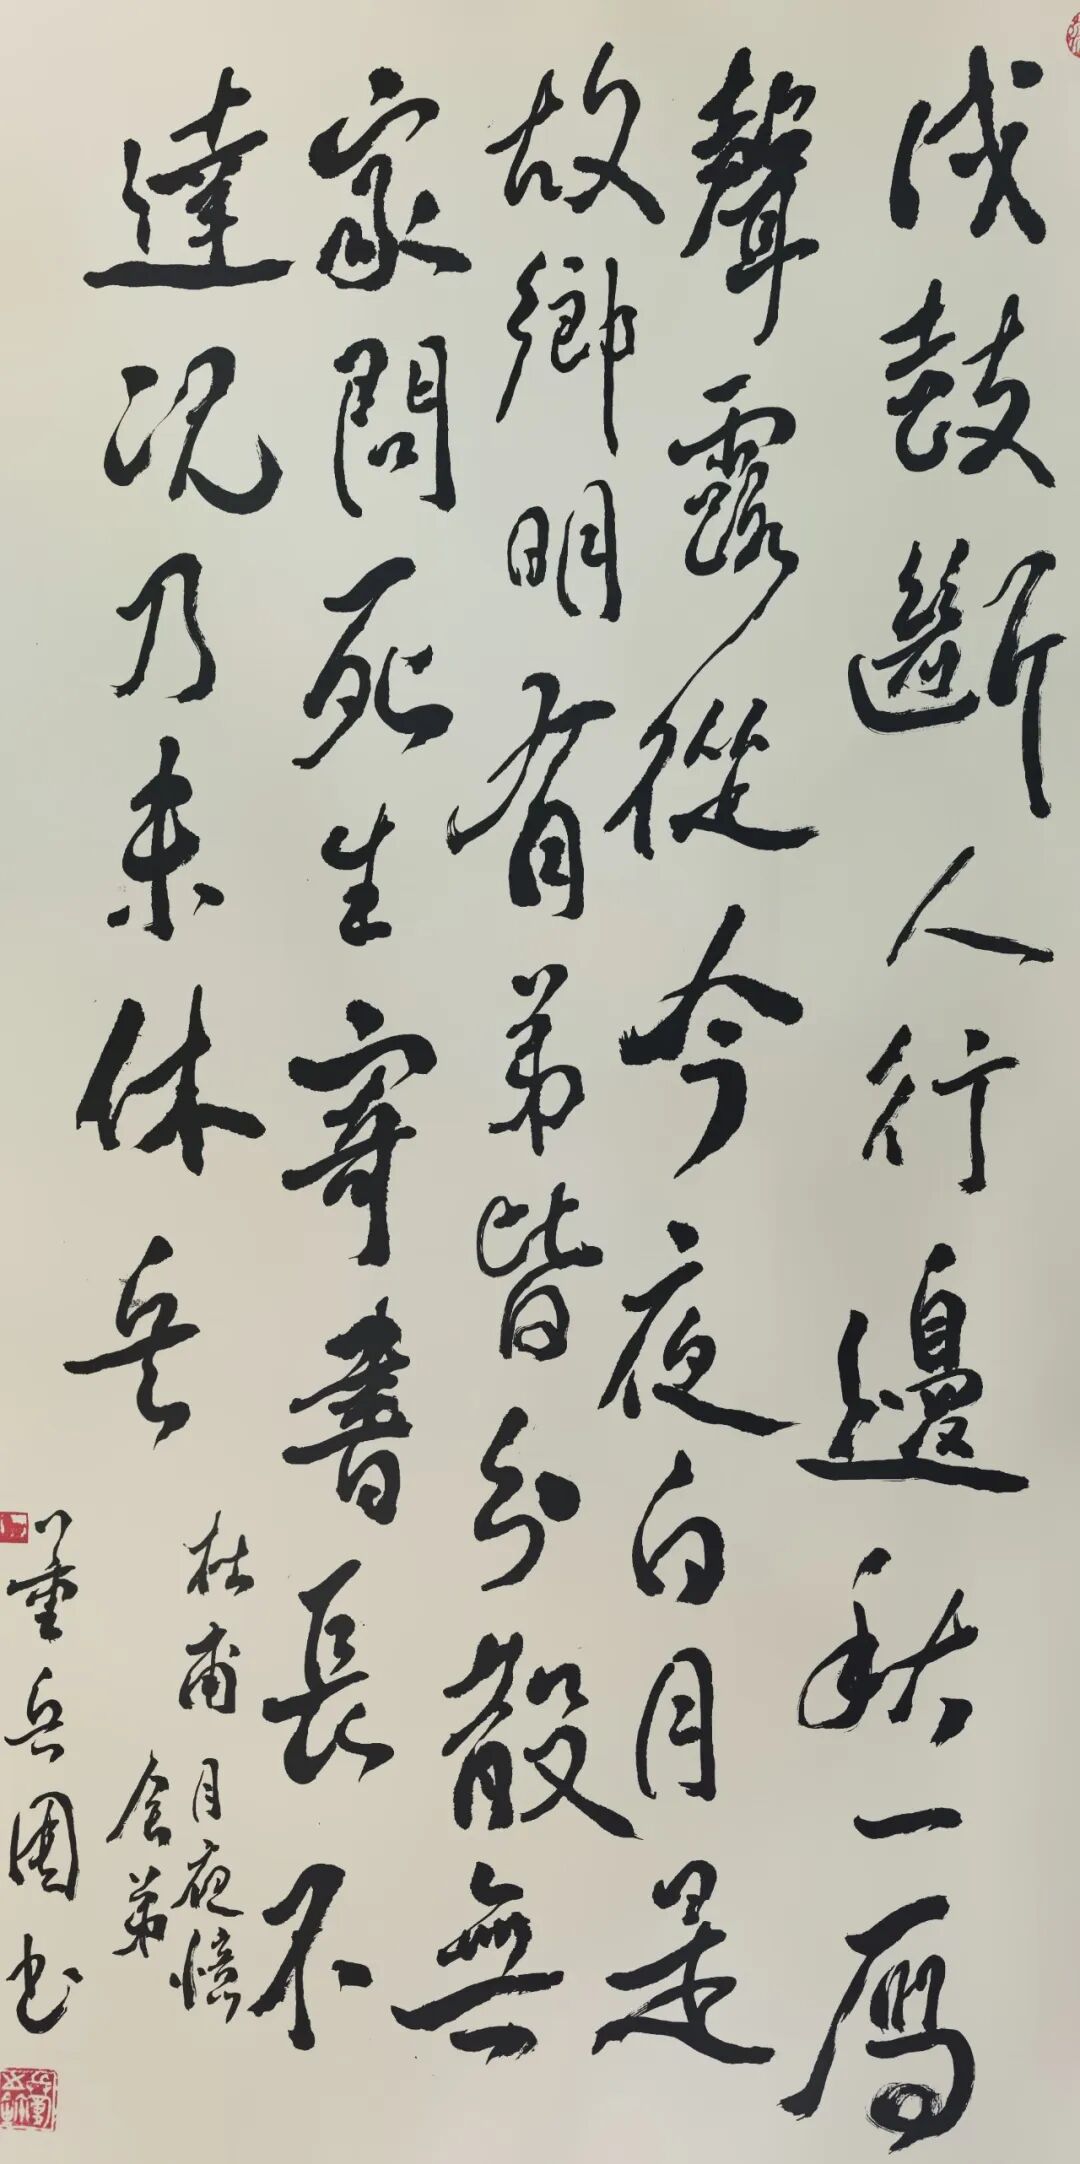 戍鼓斷人行邊秋一鴈
聲露從今夜白月是
故鄉明有弟皆分散無
家問死生寄書長不
達况乃未休兵
杜甫月夜憶
舍弟
董兵书